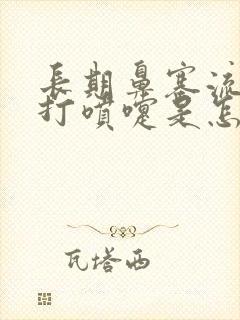 長期鼻塞流
打噴嚏是怎
瓦塔西